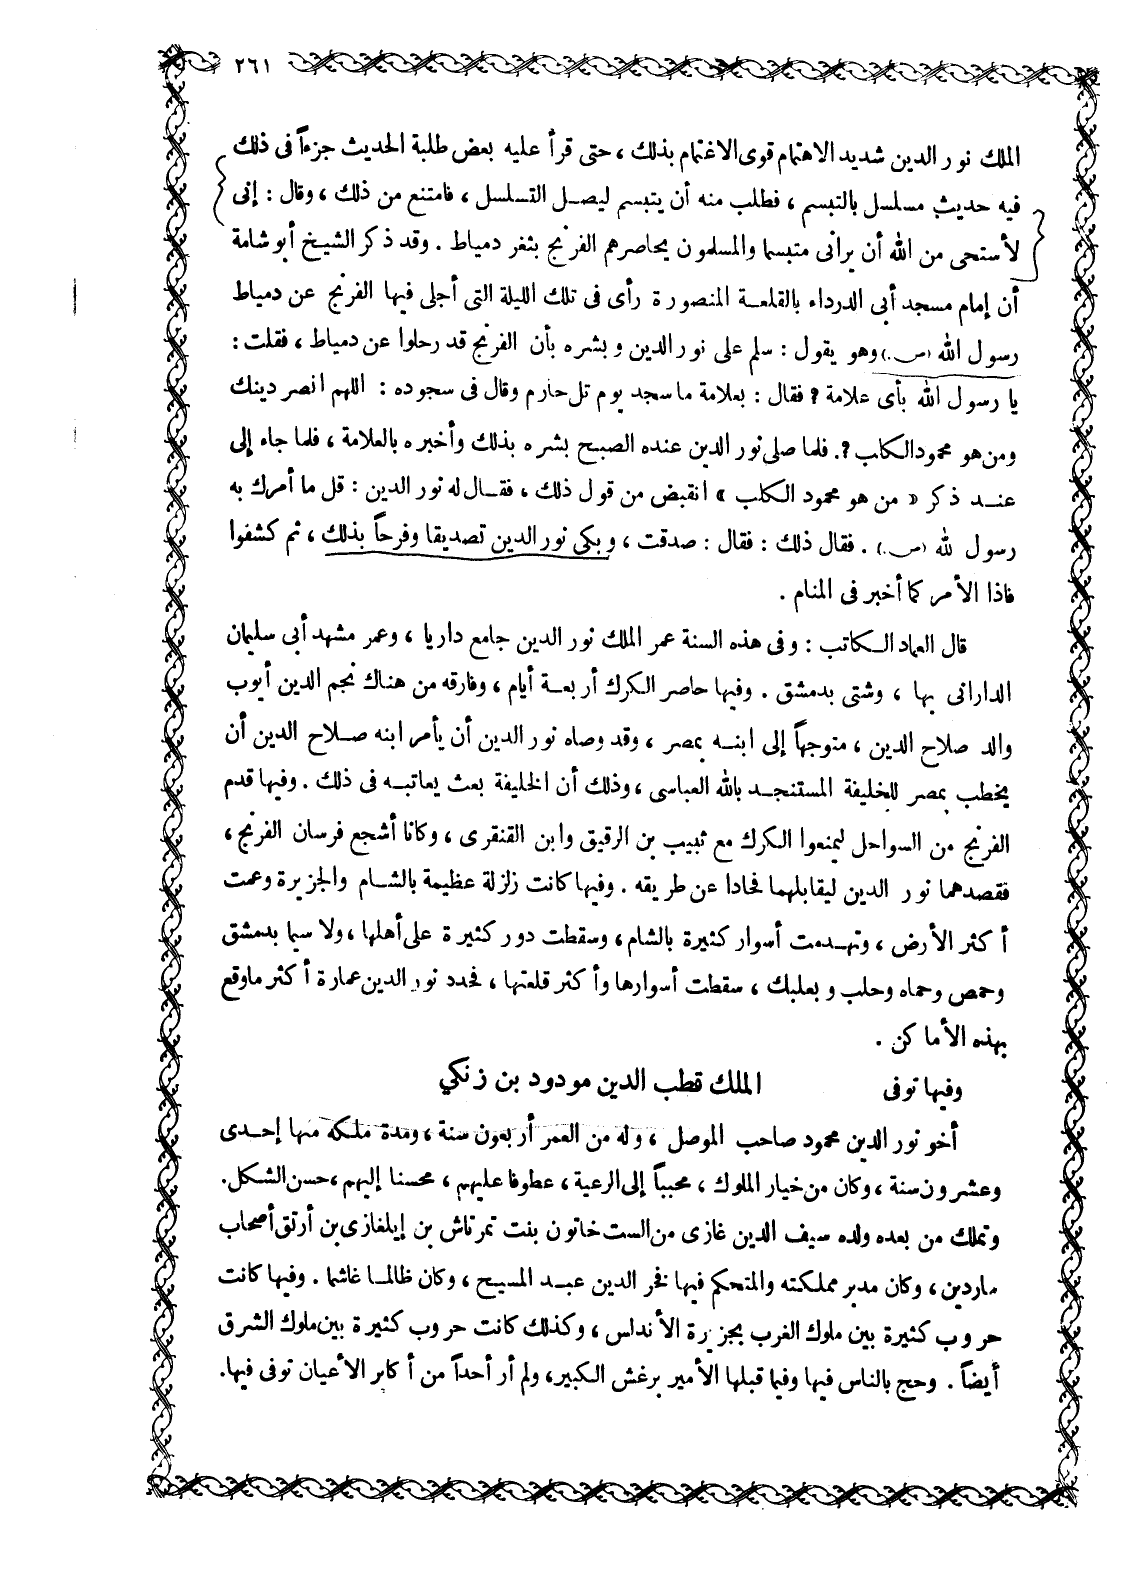 ٢٦١
الملك نور الدين شديد الاهتمام قوى الاغتمام بذلك ، حتى قرأ عليه بعض طلبة الحديث جزءاً فى ذلك
فيه حديث مسلسل بالتبسم ، فطلب منه أن يتبسم ليصل التسلسل ، فامتنع من ذلك ، وقال : إنى
لأستحى من الله أن يرانى متبسما والمسلمون يحاصرهم الفرنج بثغر دمياط . وقد ذكر الشيخ أبو شامة
أن إمام مسجد أبى الدرداء بالقلعة المنصورة رأى فى تلك الليلة التى أجلى فيها الفرنج عن دمياط
رسول الله (س.) وهو يقول : سلم على نور الدين وبشره بأن الفرنج قد رحلوا عن دمياط ، فقلت :
يا رسول الله بأى علامة ؟ فقال : بعلامة ما سجد يوم تل حارم وقال فى سجوده : اللهم انصر دينك
ومن هو محمود الكلب ؟. فلما صلى نور الدين عنده الصبح بشره بذلك وأخبره بالعلامة ، فلما جاء إلى
عند ذكر « من هو محمود الكلب » انقبض من قول ذلك ، فقال له نور الدين : قل ما أمرك به
رسول لله (س.) . فقال ذلك : فقال : صدقت ، وبكى نور الدين تصديقا وفرحاً بذلك ، ثم كشفوا
فاذا الأمر كما أخبر فى المنام .
قال العماد الكاتب : وفى هذه السنة عمر الملك نور الدين جامع داريا ، وعمر مشهد أبى سليمان
الدارانى بها ، وشتى بدمشق . وفيها حاصر الكرك أربعة أيام ، وفارقه من هناك نجم الدين أيوب
والد صلاح الدين ، متوجهاً إلى ابنه بمصر ، وقد وصاه نور الدين أن يأمر ابنه صلاح الدين أن
يخطب بمصر للخليفة المستنجد بالله العباسى ، وذلك أن الخليفة بعث يعاتبه فى ذلك . وفيها قدم
الفرنج من السواحل ليمنعوا الكرك مع ثبيب بن الرقيق وابن القنقرى ، وكانا أشجع فرسان الفرنج ،
فقصدهما نور الدين ليقابلهما فحادا عن طريقه . وفيها كانت زلزلة عظيمة بالشام والجزيرة وعمت
أكثر الأرض ، وتهدمت أسوار كثيرة بالشام ، وسقطت دور كثيرة على أهلها ، ولا سيما بدمشق
وحمص وحماه وحلب وبعلبك ، سقطت أسوارها وأكثر قلعتها ، فجدد نور الدين عمارة أكثر ماوقع
بهذه الأماكن .
وفيها توفى الملك قطب الدين مودود بن زنكي
أخو نور الدين محمود صاحب الموصل ، وله من العمر أربعون سنة ، ومدة ملكه منها إحدى
وعشرون سنة ، وكان من خيار الملوك ، محبباً إلى الرعية ، عطوفا عليهم ، محسنا إليهم ، حسن الشكل.
وتملك من بعده ولده سيف الدين غازى من الست خاتون بنت تمرتاش بن إيلغازى بن أرتق أصحاب
ماردين ، وكان مدبر مملكته والمتحكم فيها فخر الدين عبد المسيح ، وكان ظالما غاشما . وفيها كانت
حروب كثيرة بين ملوك الغرب بجزيرة الأندلس ، وكذلك كانت حروب كثيرة بين ملوك الشرق
أيضاً . وحج بالناس فيها وفيما قبلها الأمير برغش الكبير ، ولم أر أحداً من أكابر الأعيان توفى فيها.